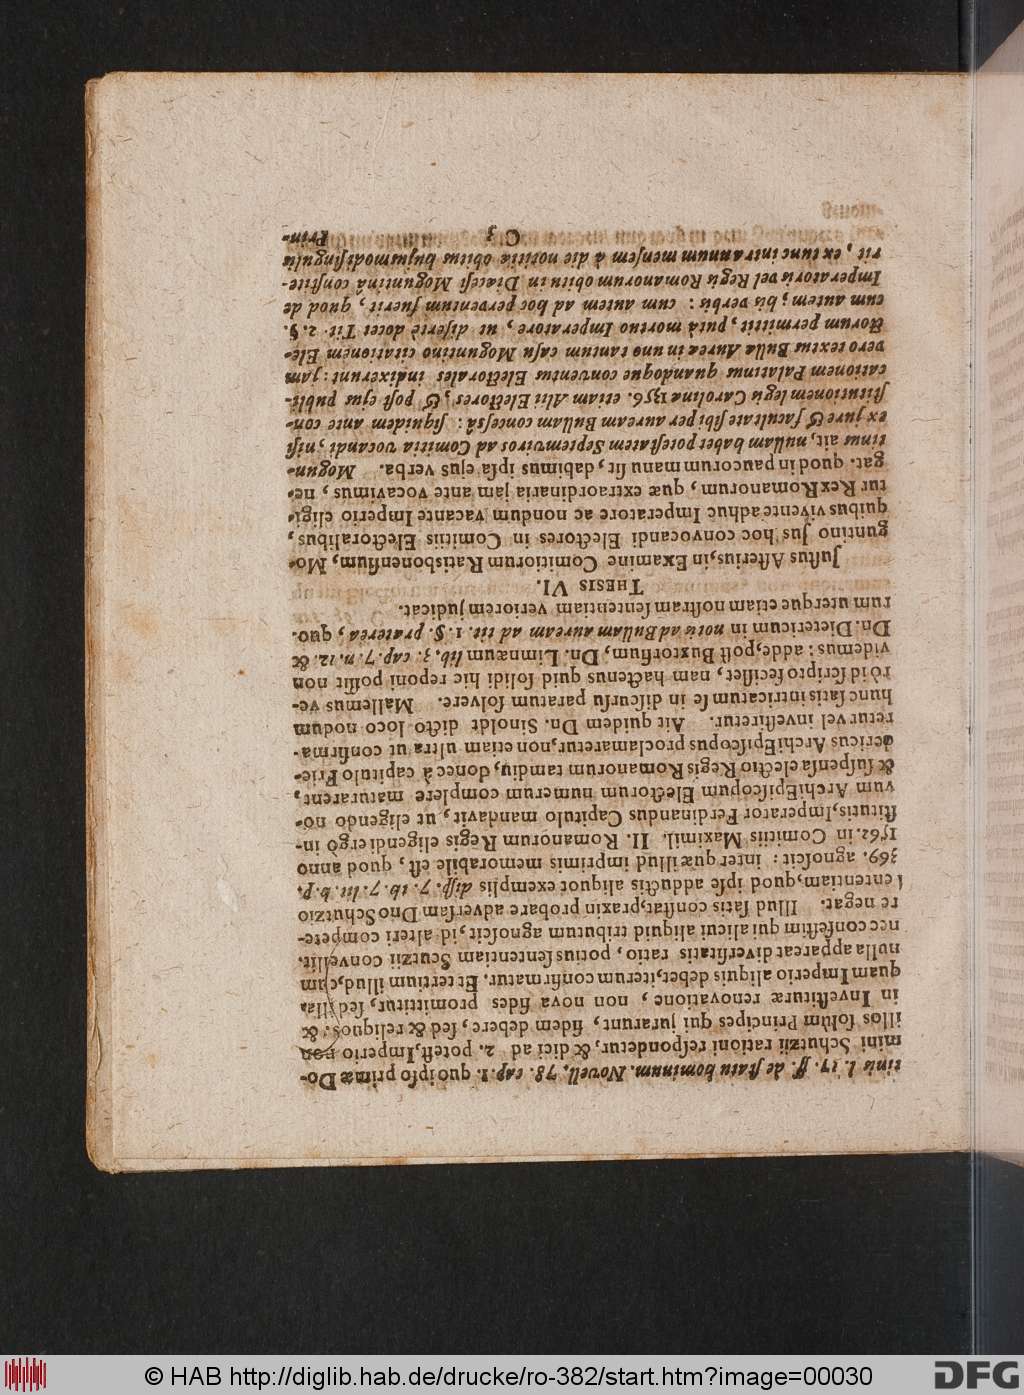 tinis l. 17. ff. de statu hominum. Novell. 78. cap. 1. quo ipso primæ Do-
mini Schutzii rationi respondetur, & dici ad 2. potest, Imperio non
illos solùm Principes qui jurarunt, fidem debere, sed & reliquos: &
in Investituræ renovatione, non nova fides promittitur, sed illa
quam Imperio aliquis debet, iterum confirmatur. Et tertium illud, cum
nulla appareat diversitatis ratio, potius sententiam Scutzii convellit.
nec confestim qui alicui aliquid tributum agnoscit, id alteri compete-
re negat. Illud satis constat, praxin probare adversam Dno Schutzio
sententiam, quod ipse adductis aliquot exemplis disp. 7. th. 7. lit. b. p.
369. agnoscit: inter quæ illud imprimis memorabile est, quod anno
1562. in Comitiis Maximil. II. Romanorum Regis eligendi ergò in-
stitutis, Imperator Ferdinandus Capitulo mandavit, ut eligendo no-
vum ArchiEpiscopum Electorum numerum complere maturarent,
& suspensa electio Regis Romanorum tamdiu, donec à capitulo Frie-
dericus ArchiEpiscopus proclamaretur, non etiam ultra ut confirma-
retur vel investiretur. Ait quidem Dn. Sinoldt dicto loco nodum
hunc satis intricatum se in discursu paratum solvere. Mallemus ve-
rò id scripto fecisset, nam hactenus quid solidi hic reponi possit non
videmus: adde, post Buxtorfium, Dn. Limnæum lib. 3. cap. 7. n. 12. &
Dn. Dietericum in notis ad Bullam auream ad tit. 1. §. præterea, quo-
rum uterque etiam nostram sententiam veriorem judicat.
THESIS VI.
Justus Asterius, in Examine Comitiorum Ratisbonensium, Mo-
guntino Jus hoc convocandi Electores in Comitiis Electoralibus,
quibus vivente adhuc Imperatore ac nondum vacante Imperio eligi-
tur Rex Romanorum, quæ extraordinaria jam ante vocavimus, ne-
gat. quod in paucorum manu sit, dabimus ipsa ejus verba. Mogun-
tinus ait, nullam habet potestatem Septemviros ad Comitia vocandi, nisi
ex jure & facultate sibi per auream Bullam concessâ: siquidem ante con-
stitutionem legis Carolinæ 1356. etiam Alii Electores, & post ejus publi-
cationem Palatinus quandoque conventus Electorales indixerunt: jam
vero textus Bullæ Aureæ in uno tantum casu Moguntino citationem Ele-
ctorum permittit, putà mortuo Imperatore, ut disertè docet Tit. 2. §.
cum autem; his verbis: cum autem ad hoc perventum fuerit, quod de
Imperatoris vel Regis Romanorum obitu in Diœcesi Moguntinâ constite-
rit, ex tunc intra unum mensem à die notitiæ obitus hujusmodi singulis
C 3 Prin-
© HAB http://diglib.hab.de/drucke/ro-382/start.htm?image=00030
DFG